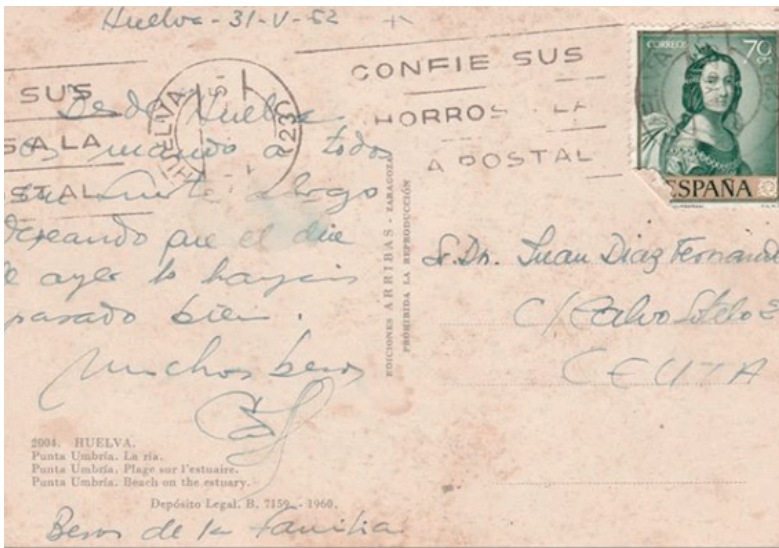 Huelva - 31-V-62
CONFIE SUS
HORROS LA
A POSTAL
SUS
S A LA
STAL
HUELVA
CORREOS
70
CTS
ESPAÑA
Desde Huelva
os mando a todos
un fuerte abrazo
deseando que el día
de ayer lo hayais
pasado bien.
Muchos besos
EDICIONES ARRIBAS - ZARAGOZA
PROHIBIDA LA REPRODUCCIÓN
Sr. Dn. Juan Diaz Fernand
C/ Calvo Sotelo
CEUTA
2004. HUELVA.
Punta Umbría. La ría.
Punta Umbría. Plage sur l'estuaire.
Punta Umbría. Beach on the estuary.
Depósito Legal. B. 7159. - 1960.
Besos de la familia